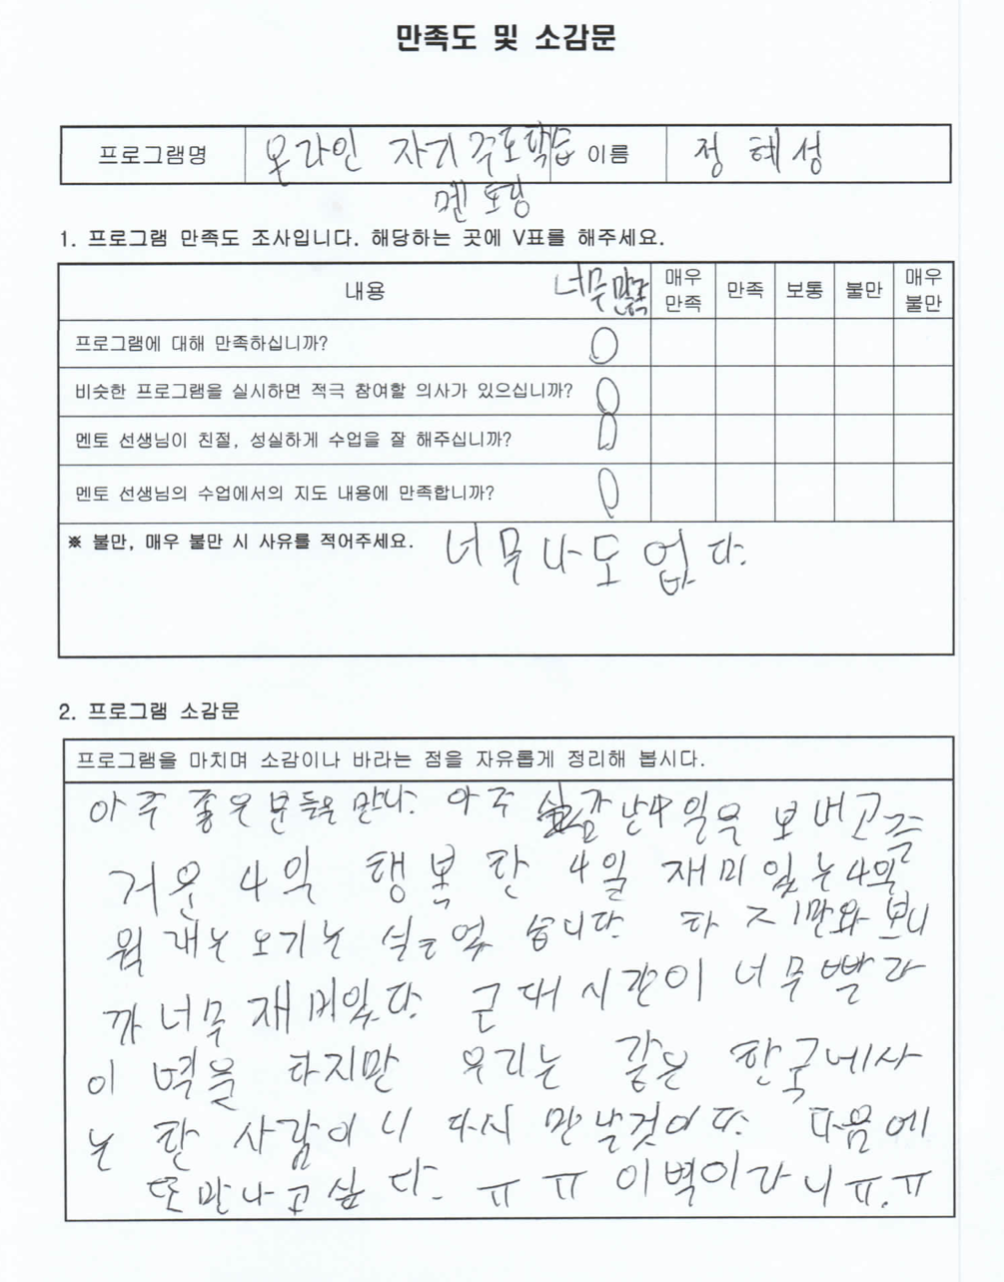 만족도 및 소감문
프로그램명 온라인 자기주도학습 이름 정혜성
멘토링
1. 프로그램 만족도 조사입니다. 해당하는 곳에 V표를 해주세요.
내용 너무만족 매우 만족 만족 보통 불만 매우 불만
프로그램에 대해 만족하십니까? O
비슷한 프로그램을 실시하면 적극 참여할 의사가 있으십니까? O
멘토 선생님이 친절, 성실하게 수업을 잘 해주십니까? O
멘토 선생님의 수업에서의 지도 내용에 만족합니까? O
※ 불만, 매우 불만 시 사유를 적어주세요. 너무나도 없다.
2. 프로그램 소감문
프로그램을 마치며 소감이나 바라는 점을 자유롭게 정리해 봅시다.
아주 좋은 분들은 만나. 아주 실감난 4일은 보버고 즐
거운 4일 행복한 4일 재미있는 4일
오기는 습니다. 하지만 와보니
까 너무 재미있다. 근대 시간이 너무 빨라
이벽을 하지만 우리는 같은 한국에 사
는 한 사람이니 다시 만날것이다. 다음에
또 만나고 싶다. ㅠㅠ 이벽이라니 ㅠ.ㅠ